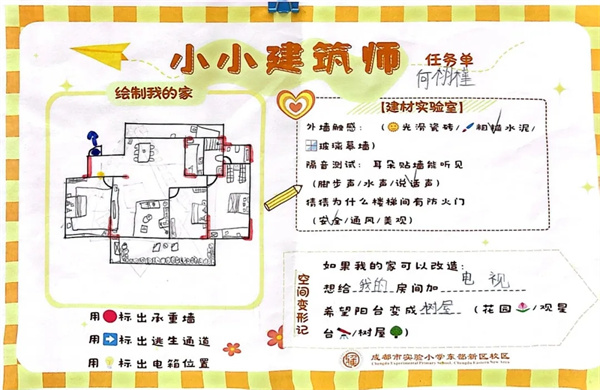 小小建筑师 任务单
何栩槿
绘制我的家
【建材实验室】
外墙触感：（光滑瓷砖/粗糙水泥/
玻璃幕墙）
隔音测试：耳朵贴墙能听见
（脚步声/水声/说话声）
猜猜为什么楼梯间有防火门
（安全/通风/美观）
用 标出承重墙
用 标出逃生通道
用 标出电箱位置
空间变形记
如果我的家可以改造：
想给 我的 房间加 电视
希望阳台变成 树屋 （花园/观星
台/树屋）
成都市实验小学东部新区校区